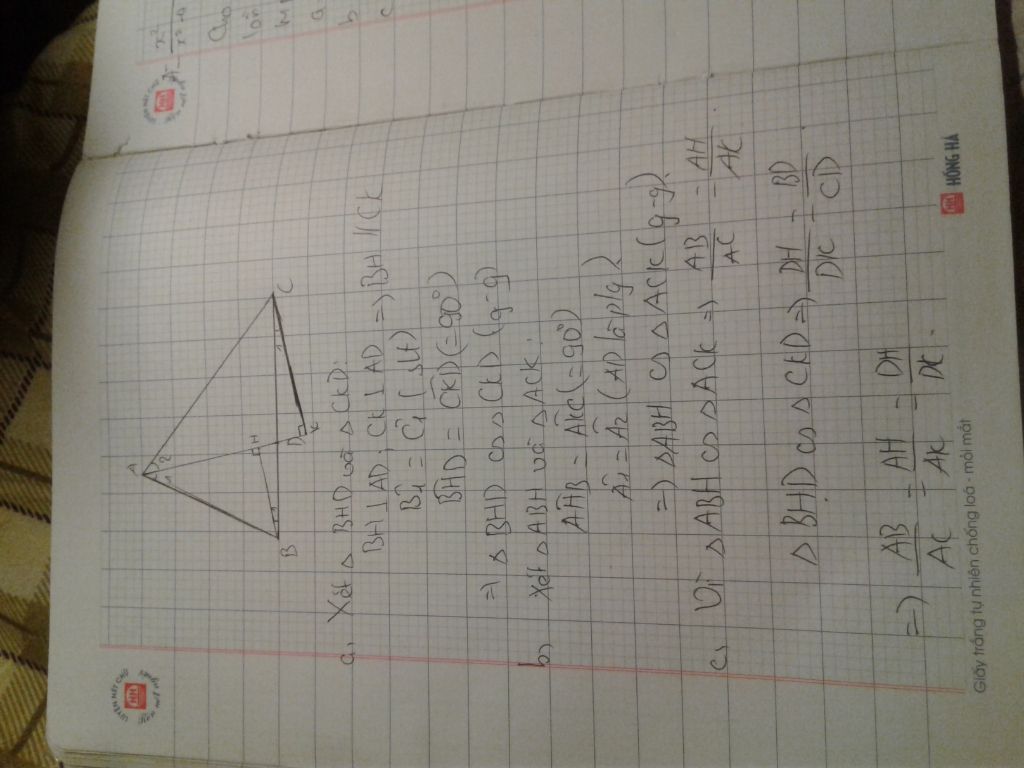 A
1 2
H
B
D
C
K
a, Xét △ BHD và △ CKD:
BH ⊥ AD; CK ⊥ AD => BH // CK
B̂1 = Ĉ1 (slt)
BHD = CKD (= 90°)
=> △ BHD ∽ △ CKD (g-g)
b, Xét △ ABH và △ ACK.
AHB = AKC (= 90°)
Â1 = Â2 (AD là p/g)
=> △ABH ∽ △ ACK (g-g)
c, Vì △ ABH ∽ △ ACK => AB/AC = AH/AK.
△ BHD ∽ △ CKD => DH/DK = BD/CD
=> AB/AC = AH/AK = DH/DK.
Giấy trắng tự nhiên chống loá - mỏi mắt
HỒNG HÀ
LUYỆN NÉT CHỮ
HH
x²
a
b
c